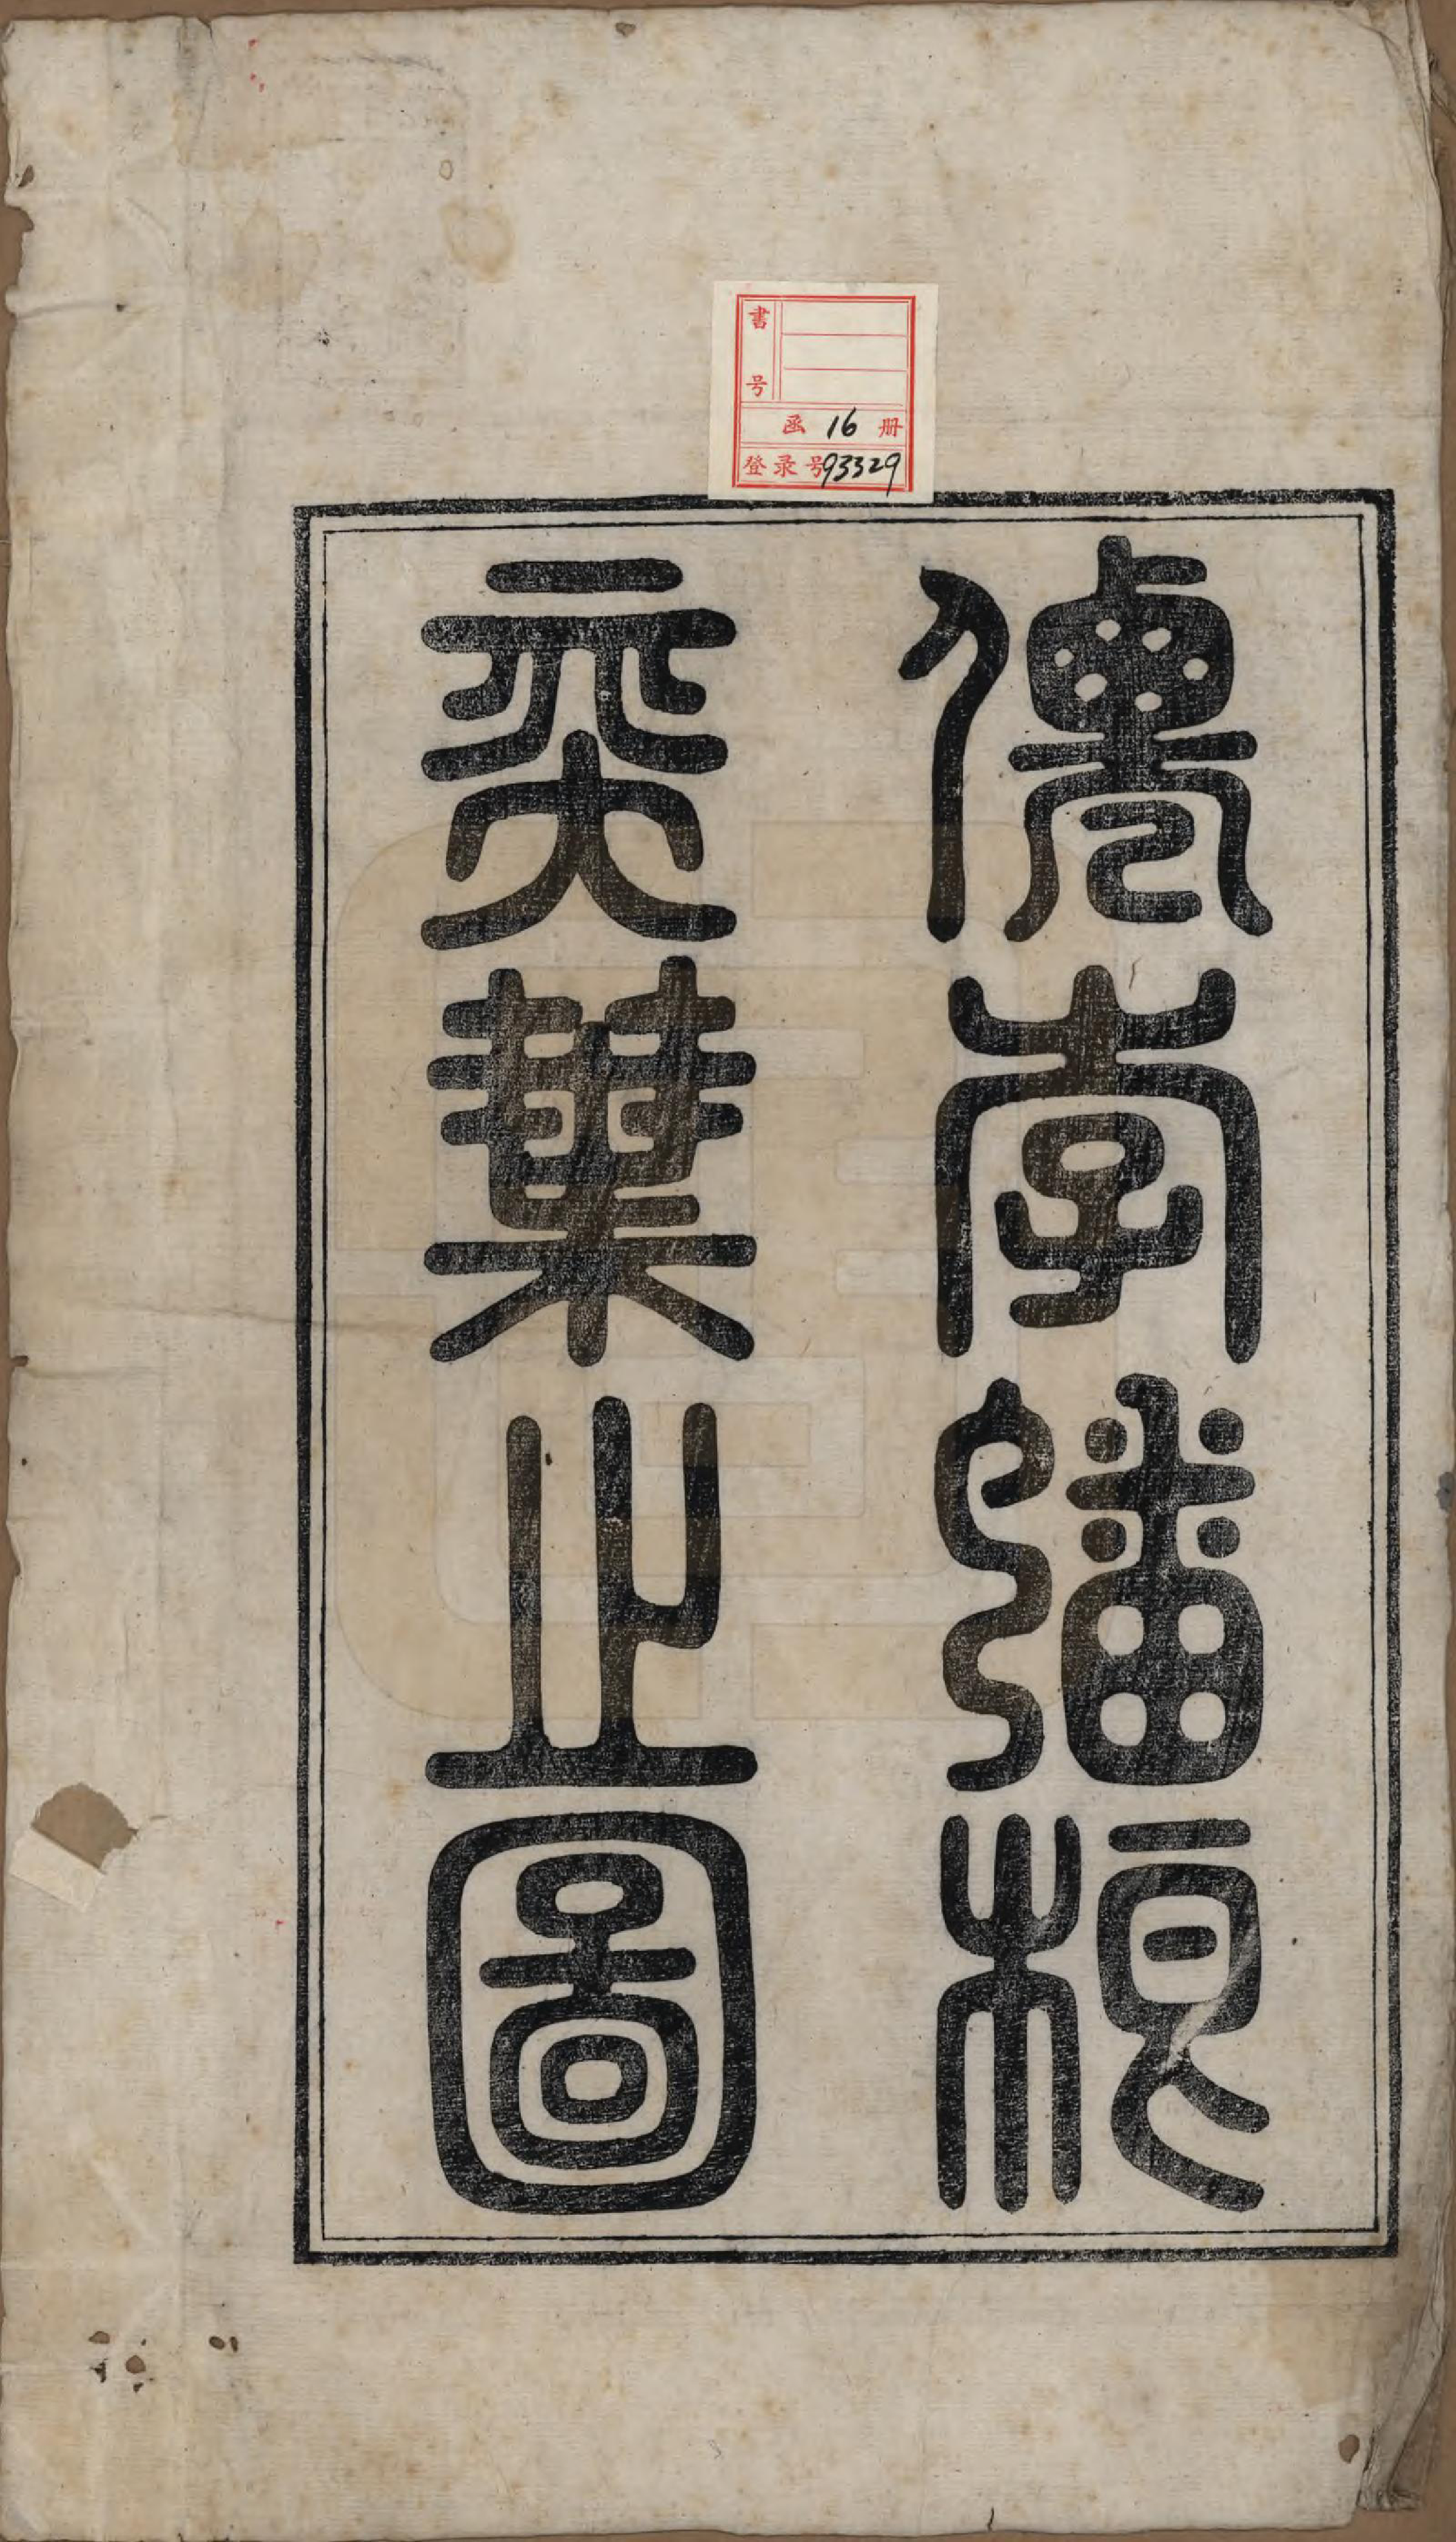 書号
函 16 册
登录号93329
僊李蟠根
奕葉之圖